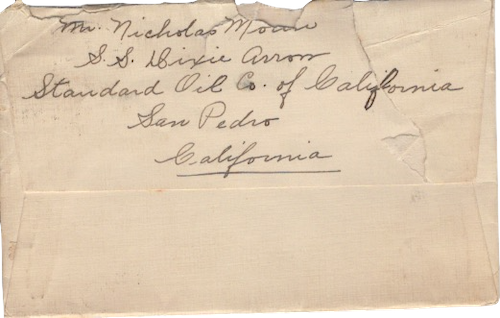 Mr. Nicholas Moore
S.S. Dixie Arrow
Standard Oil Co. of California
San Pedro
California